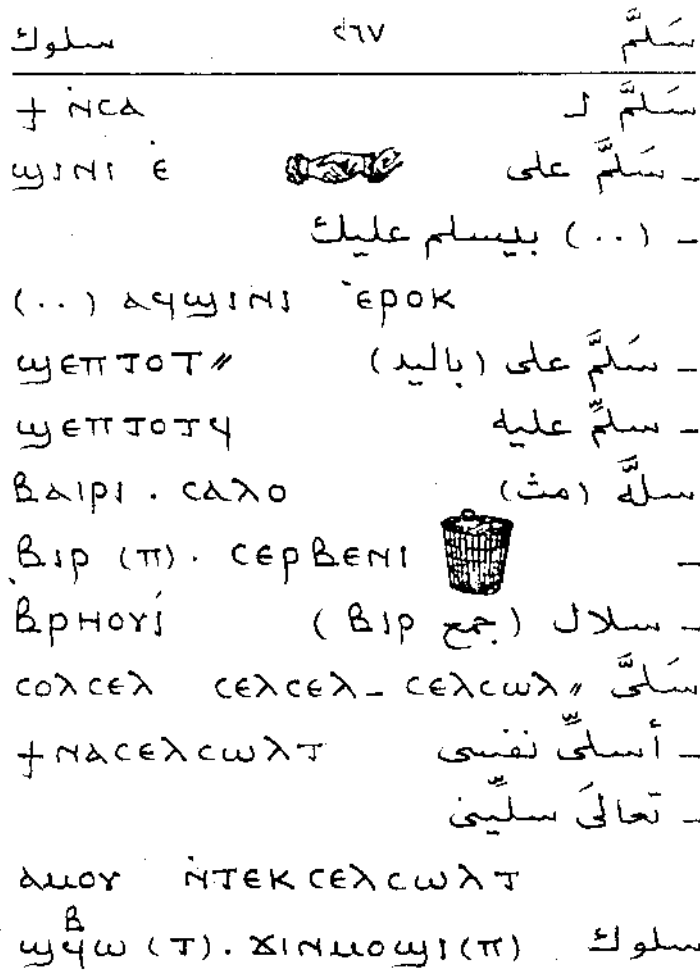 سَلَّم ٤٦٧ سلوك
سَلَّم لـ ϯ ⲛ̇ⲥⲁ
ـ سَلَّم على ϣⲓⲛⲓ ⲉ̇
ـ (..) بيسلم عليك
(..) ⲁϥϣⲓⲛⲓ ⲉ̀ⲣⲟⲕ
ـ سَلَّم على (باليد) ϣⲉⲡⲧⲟⲧ〃
ـ سلِّم عليه ϣⲉⲡⲧⲟⲧϥ
سلَّه (مث) ⲃⲁⲓⲣⲓ . ⲥⲁⲗⲟ
ـ ⲃⲓⲣ (ⲡ) . ⲥⲉⲣⲃⲉⲛⲓ
ـ سلال (جمع ⲃⲓⲣ) ⲃ̇ⲣⲏⲟⲩⲓ̇
سَلَّى ⲥⲟⲗⲥⲉⲗ ⲥⲉⲗⲥⲉⲗ_ ⲥⲉⲗⲥⲱⲗ〃
ـ أسلِّى نفسى ϯⲛⲁⲥⲉⲗⲥⲱⲗⲧ
ـ تعالَى سلِّينى
ⲁⲙⲟⲩ ⲛ̇ⲧⲉⲕⲥⲉⲗⲥⲱⲗⲧ
سلوك ϣϥⲃⲱ (ⲧ) . ϫⲓⲛⲙⲟϣⲓ (ⲡ)